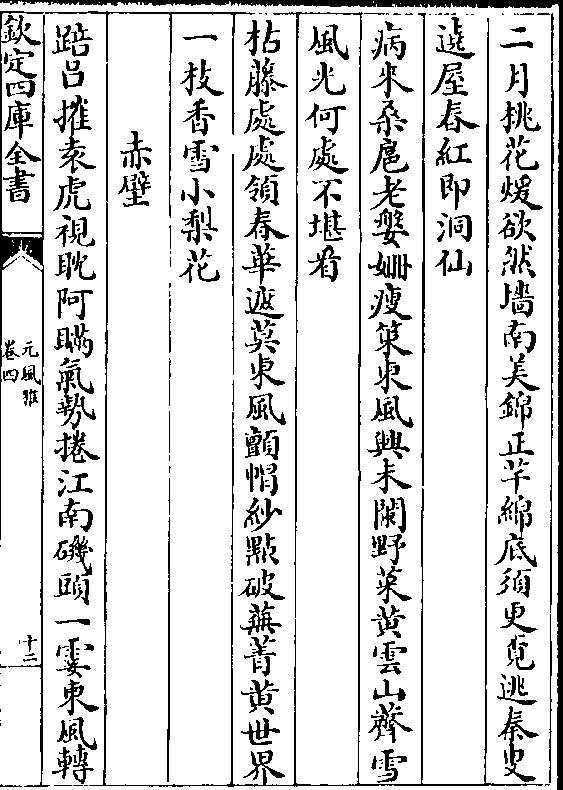 二月挑花煖欲然墻南美錦正芊綿底須更覔逃秦叟
遶屋春紅即洞仙
病來桑扈老媻姍瘦策東風興未闌野菜黄雲山薺雪
風光何處不堪看
枯藤處處領春華遮莫東風顫帽紗點破蕪菁黄世界
一枝香雪小梨花
赤壁
踣吕摧袁虎視眈阿瞞氣勢捲江南磯頭一霎東風轉
欽定四庫全書
元風雅
卷四
十二